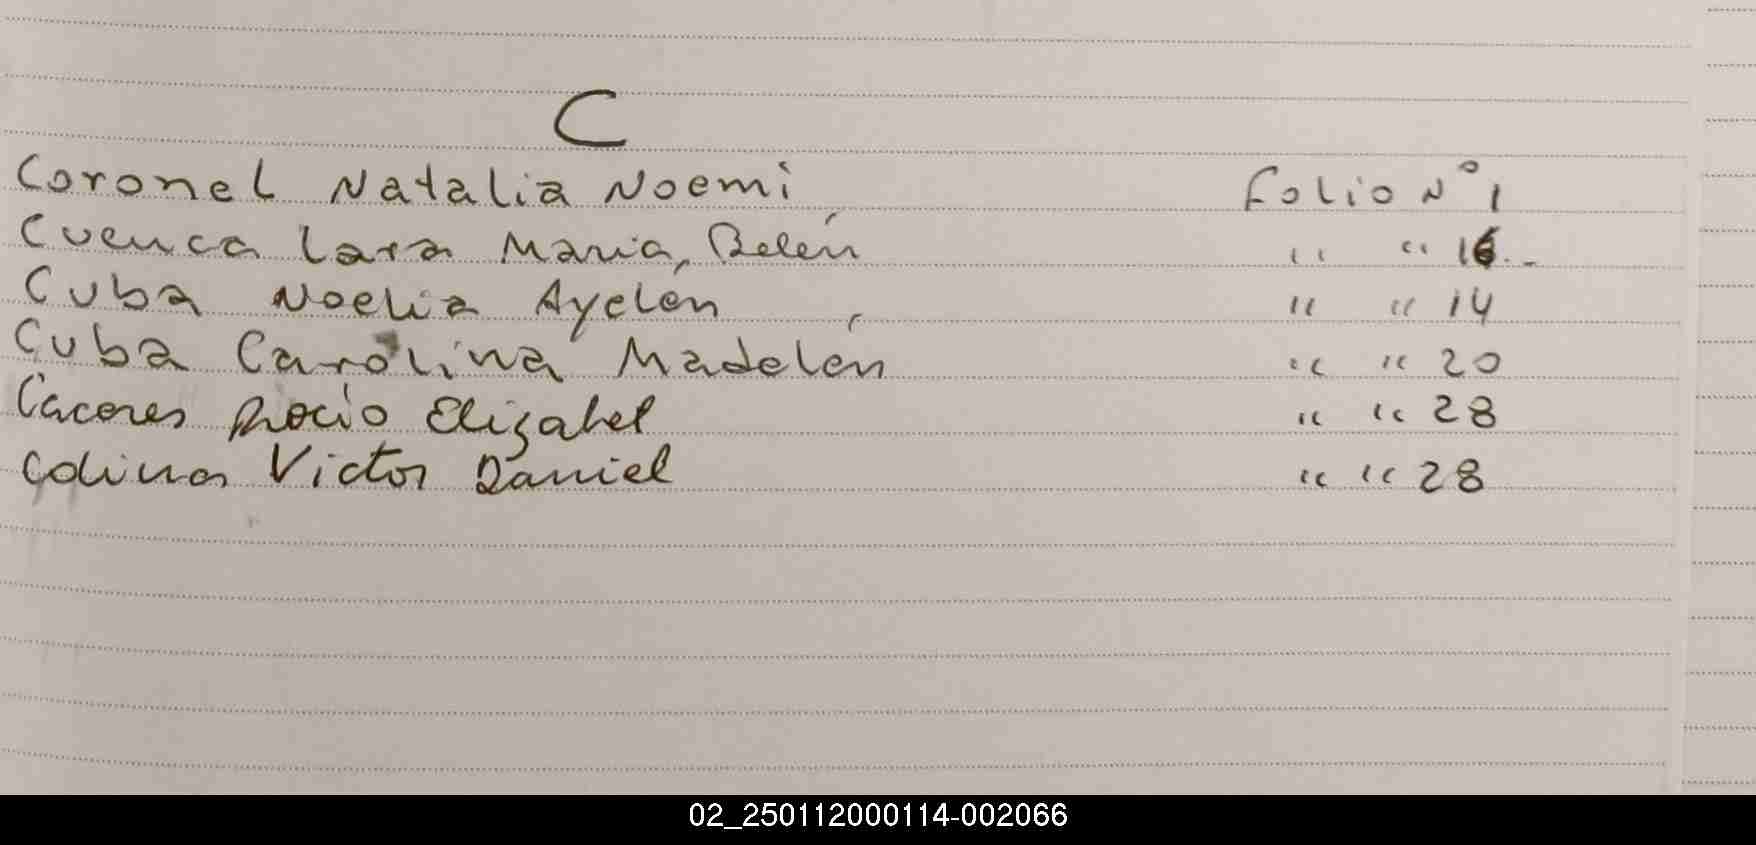 C
Coronel Natalia Noemi Folio N° 1
Cuenca Lara Maria, Belén " " 16.-
Cuba Noelia Ayelen " " 14
Cuba Carolina Madelén " " 20
Caceres Rocio Elizabet " " 28
Colina Victor Daniel " " 28
02_250112000114-002066